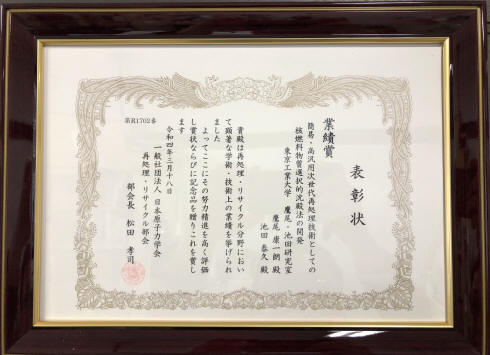 表彰状
業績賞
簡易・高汎用次世代再処理技術としての
核燃料物質選択的沈殿法の開発
東京工業大学 鷹尾・池田研究室
鷹尾 康一朗 殿
池田 泰久 殿
貴殿は再処理・リサイクル分野におい
て顕著な学術・技術上の業績を挙げられ
ました
よってここにその努力精進を高く評価
し賞状ならびに記念品を贈りこれを賞し
ます
令和四年三月十八日
一般社団法人 日本原子力学会
再処理・リサイクル部会
部会長 松田 孝司
第R1702号